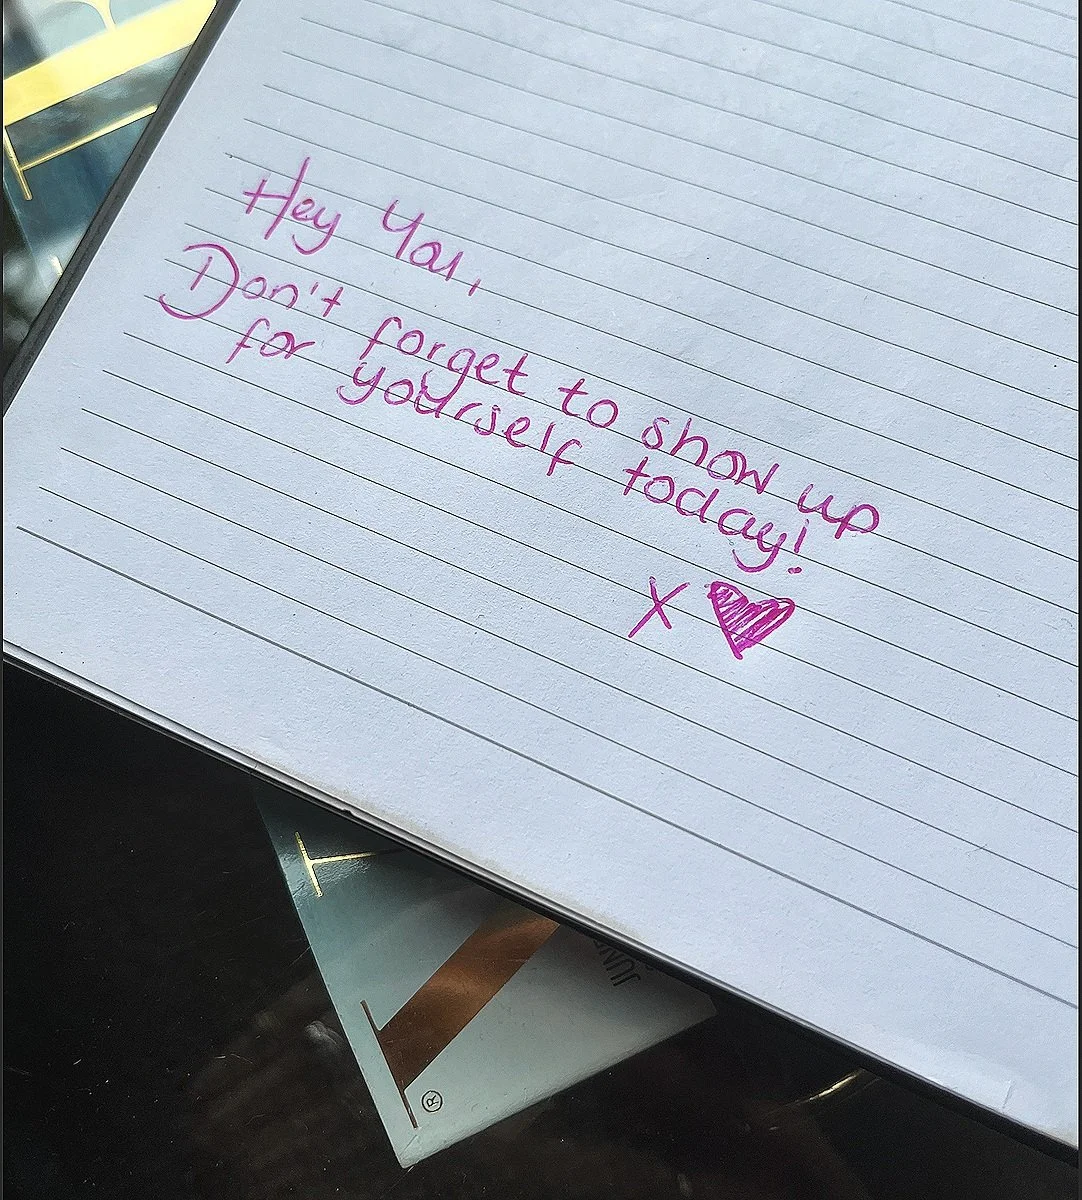 Hey You,
Don't forget to show up
for yourself today!
X ♥
®